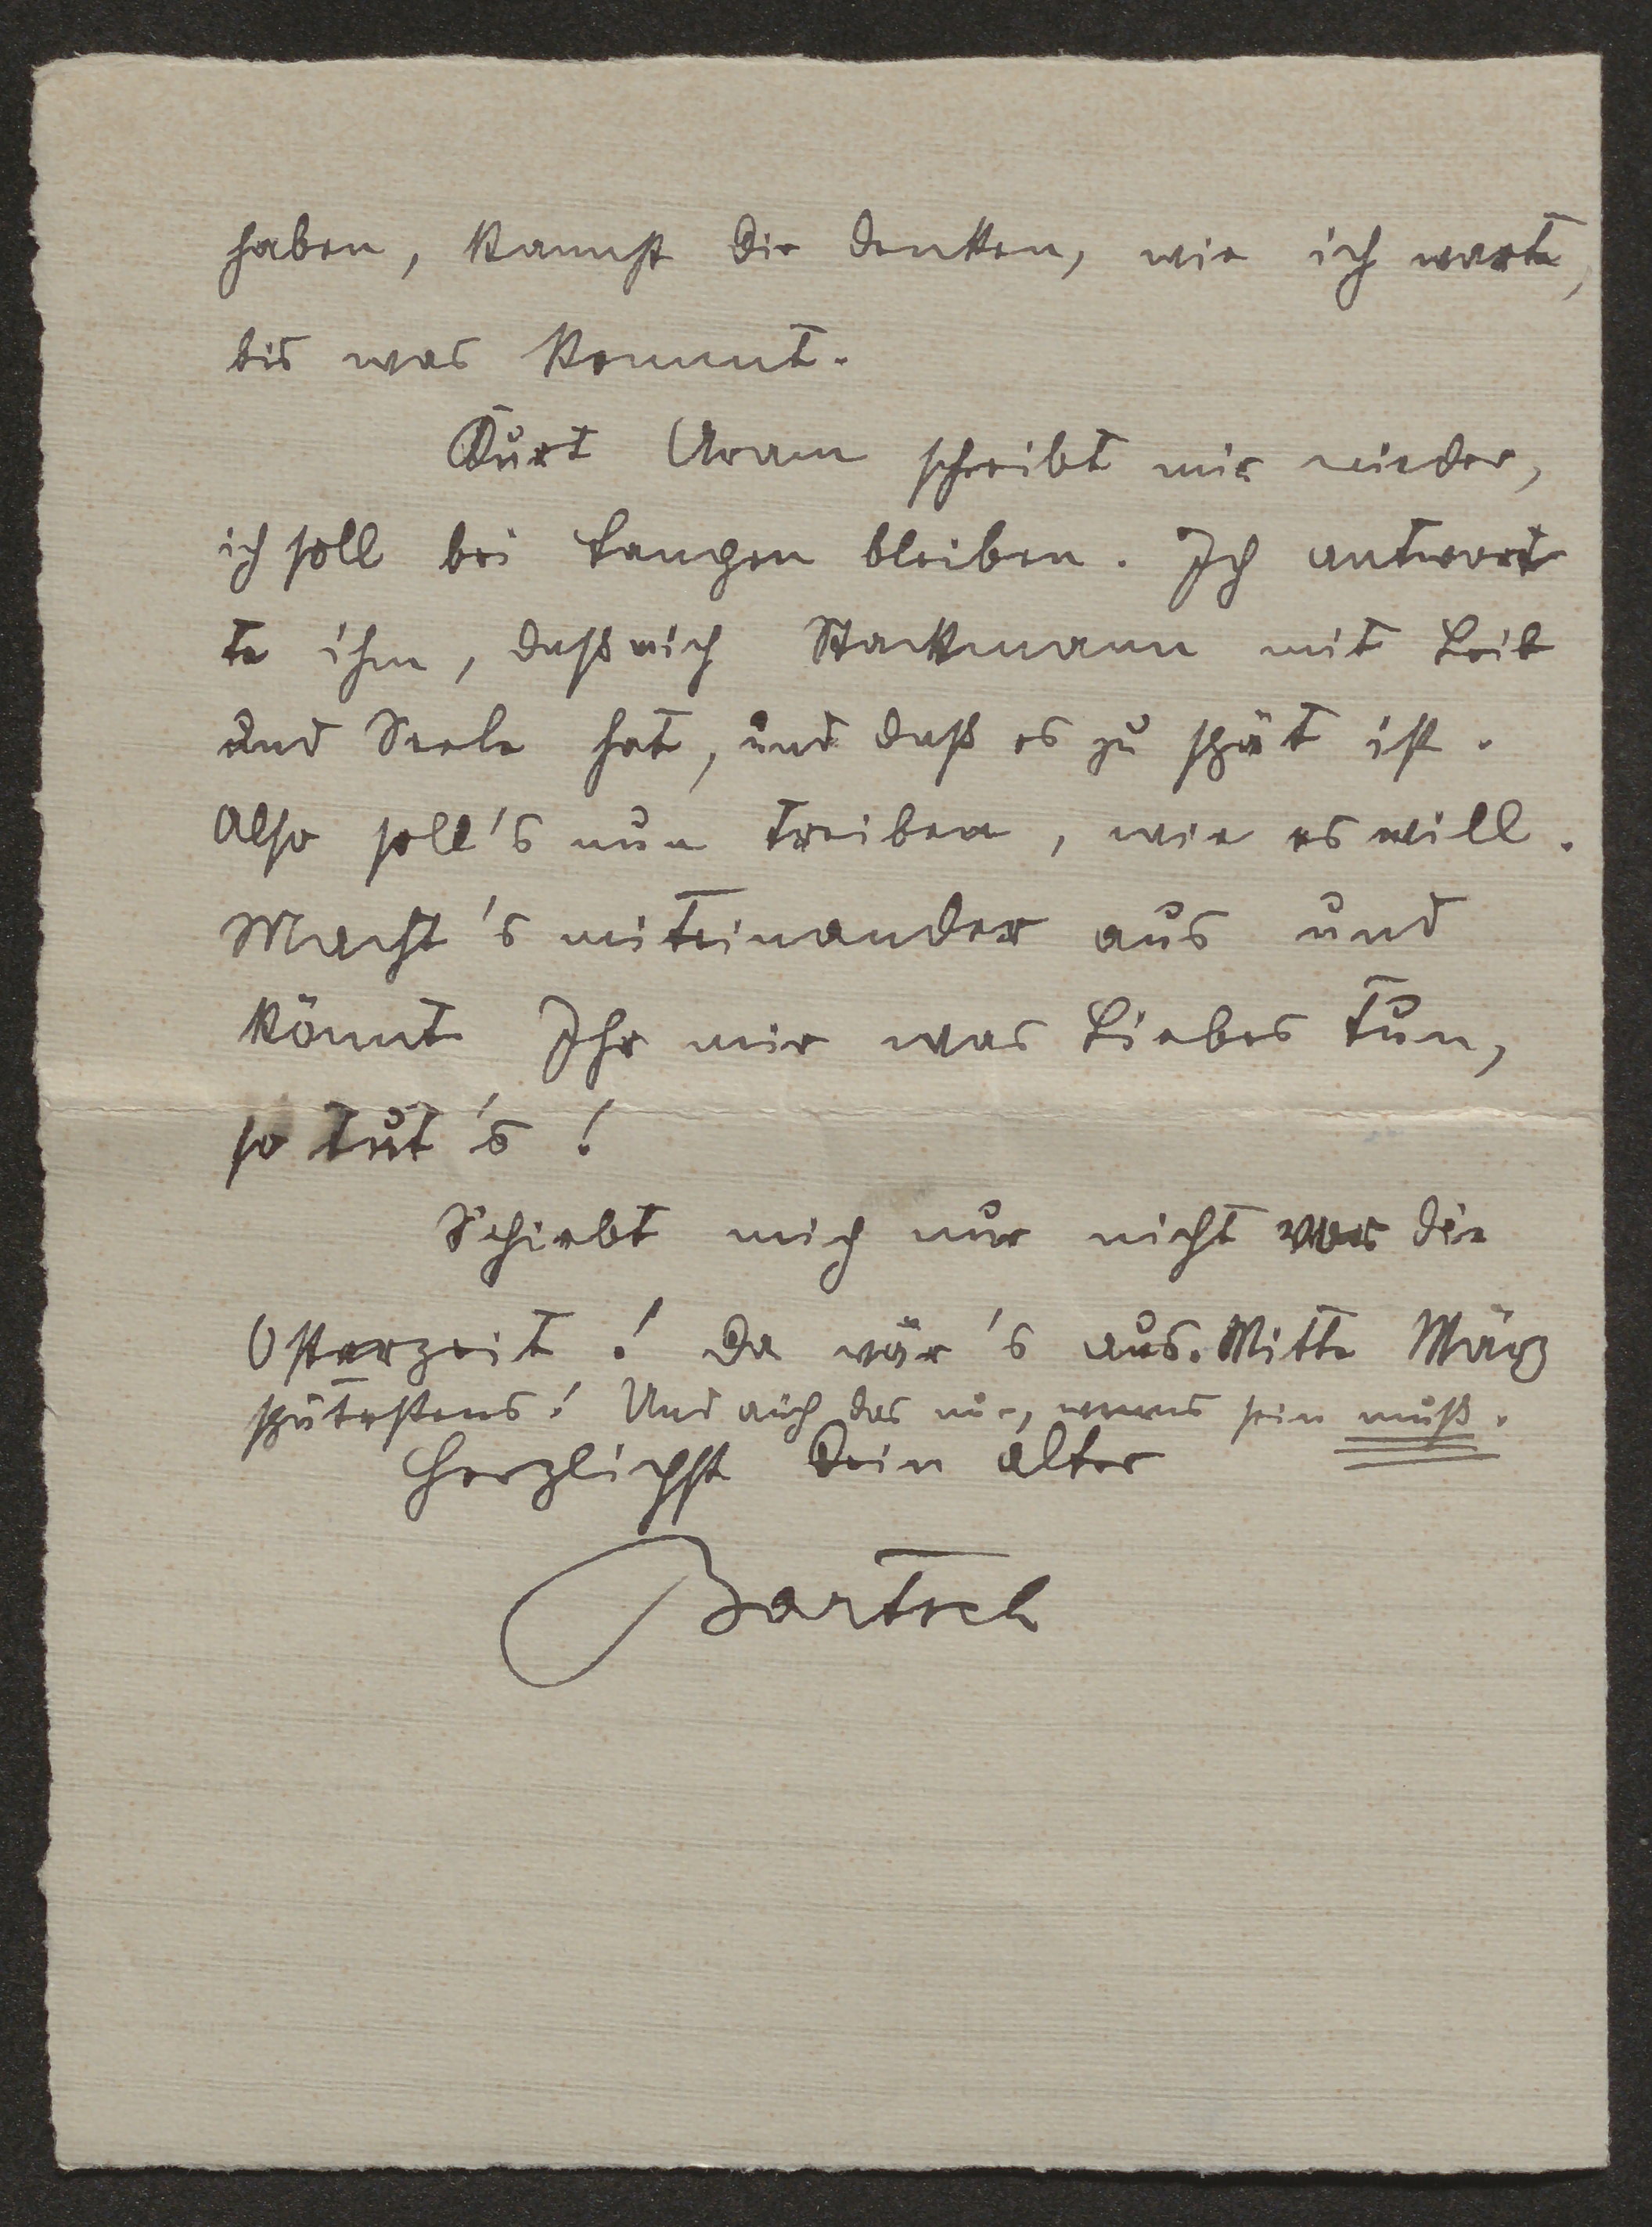 haben, kannst Dir denken, wie ich warte,
bis was kommt.
Kurt Aram schreibt mir wieder,
ich soll bei Langen bleiben. Ich antwort
te ihm, daß mich Stackmann mit Leib
und Seele hat, und daß es zu spät ist.
Also soll's nun treiben, wie es will.
Macht's miteinander aus und
könnt Ihr mir was Liebes tun,
so tut's!
Schiebt mich nur nicht vor die
Osterzeit! Da wär's aus. Mitte März
spätestens! Und auch das nur, wenns sein muß.
Herzlichst Dein alter
Bartsch